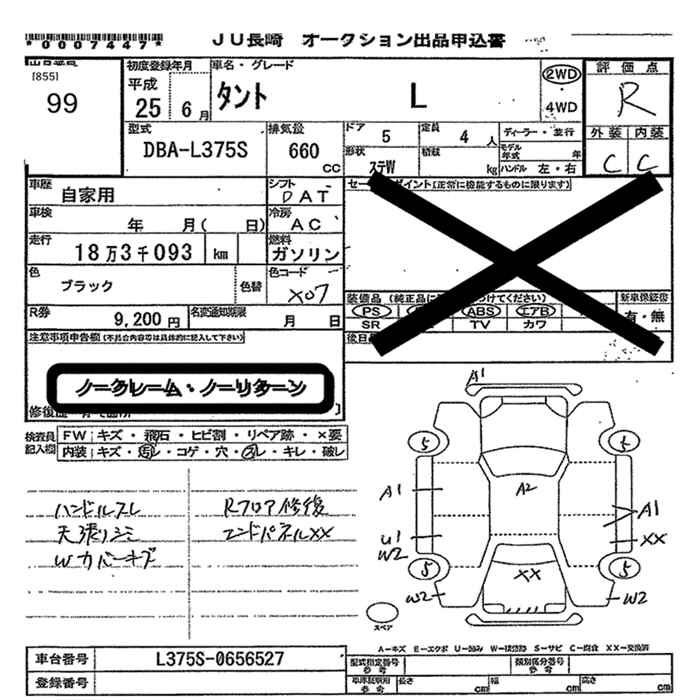 *0007447*
JU長崎 オークション出品申込書
[855]
99
初度登録年月
平成
25年 6月
車名・グレード
タント L
2WD
・
4WD
評価点
R
型式
DBA-L375S
排気量
660
CC
ドア
5
定員
4人
形状
ステW
積載
kg
ディーラー・並行
モデル年式 年
ハンドル 左・右
外装 内装
C C
車歴
自家用
シフト
DAT
セールスポイント(正常に機能するものに限ります)
車検
年 月( 日)
冷房
AC
走行
18万3千093 km
燃料
ガソリン
色
ブラック
色替
色コード
X07
装備品
PS
ABS
エアB
SR
TV
カワ
新車保証書
有・無
R券
9,200円
名変通知期限
月 日
注意事項申告欄(不具合内容等は具体的に記入して下さい)
ノークレーム・ノーリターン
検査員
記入欄
FW キズ・飛石・ヒビ割・リペア跡・×要
内装 キズ・汚レ・コゲ・穴・スレ・キレ・破レ
ハンドルスレ
天張りシミ
Wカバーキズ
Rフロア修復
エンドパネルXX
A1
5
5
A1
A2
A1
U1
W2
XX
5
5
XX
W2
W2
スペア
A-キズ E-エクボ U-凹み W-補修跡 S-サビ C-腐食 XX-交換済
車台番号
L375S-0656527
型式指定番号
参考
類別区分番号
参考
登録番号
車庫証明用
参考
長さ cm
幅 cm
高さ cm